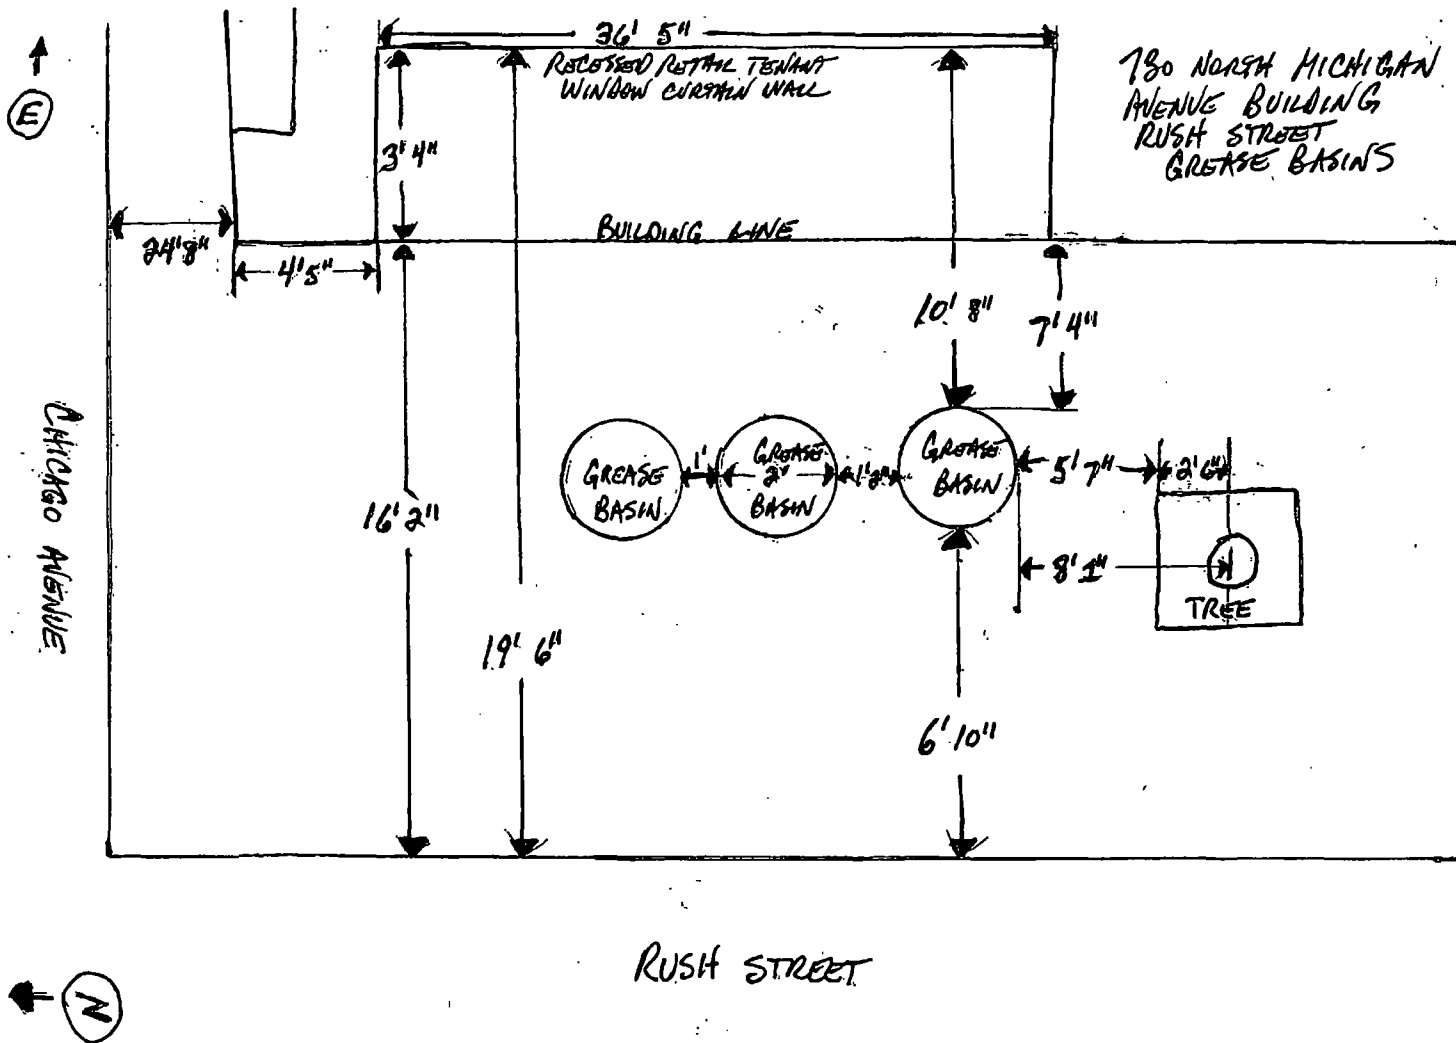 36' 5"
RECESSED RETAIL TENANT
WINDOW CURTAIN WALL
730 NORTH MICHIGAN
AVENUE BUILDING
RUSH STREET
GREASE BASINS
E
3' 4"
BUILDING LINE
24' 8"
4' 5"
10' 8"
7' 4"
CHICAGO AVENUE
GREASE
BASIN
1'
GREASE
2'
BASIN
1' 2"
GREASE
BASIN
5' 7"
2' 6"
16' 2"
8' 1"
TREE
19' 6"
6' 10"
RUSH STREET
N